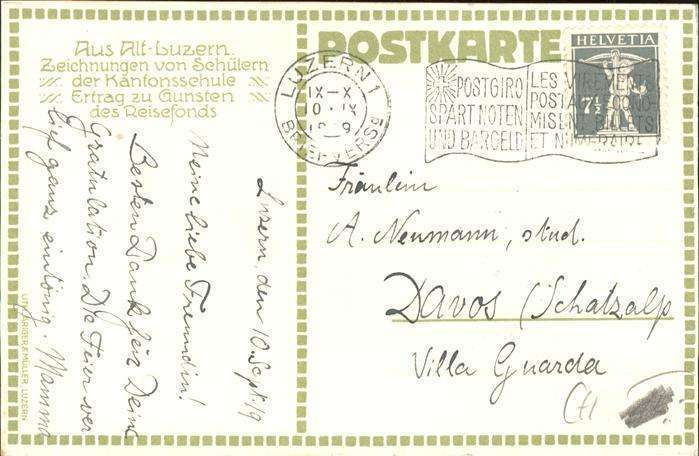 Aus Alt-Luzern.
Zeichnungen von Schülern
der Kantonsschule
Ertrag zu Gunsten
des Reisefonds
POSTKARTE
HELVETIA
7½
LUZERN 1
IX-X
BRIEFVERSD
POSTGIRO
SPART NOTEN
UND BARGELD
LES VIREMENTS
POSTAUX ÉCONO-
MISENT BILLETS
ET NUMÉRAIRE
Luzern, den 10. Sept. 19
Meine liebe Freundin!
Besten Dank für Deine
Gratulation. Die Feier ver
lief ganz eintönig. Mamma
Fräulein
A. Neumann, stud.
Davos (Schatzalp
Villa Guarda
LITH. KRIDER & MÜLLER, LUZERN